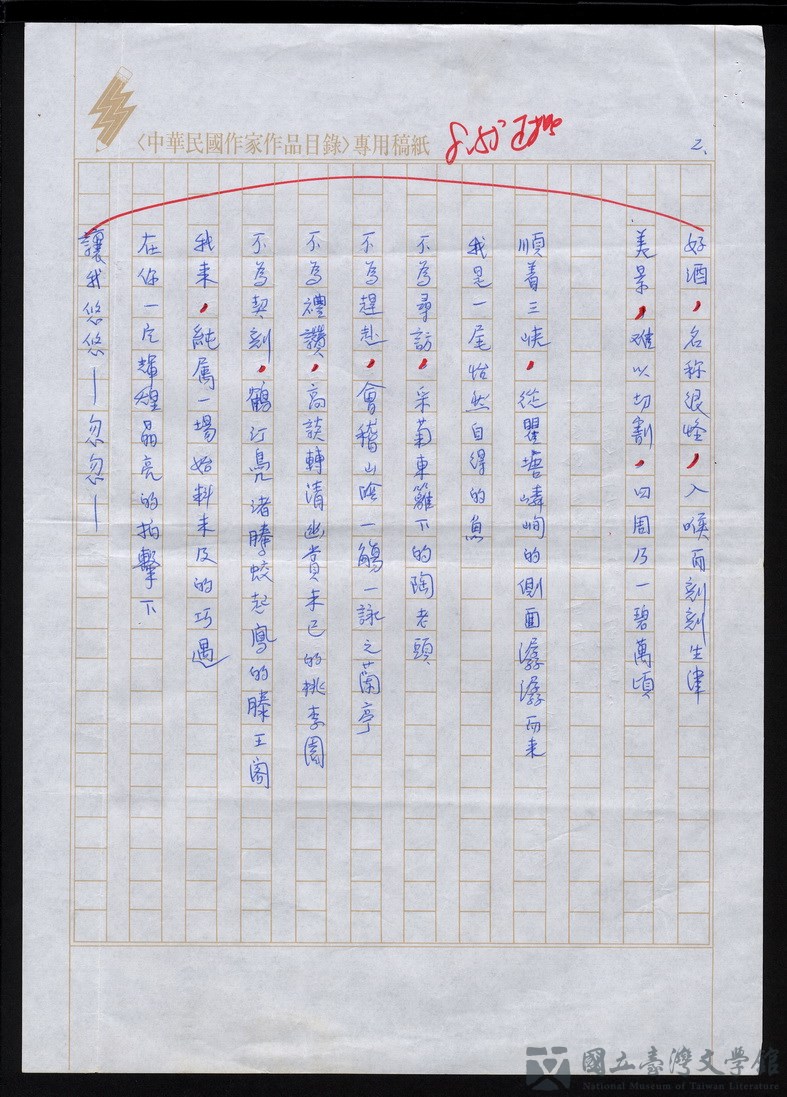 〈中華民國作家作品目錄〉專用稿紙
2.
好酒，名称很怪，入喉而刻刻生津
美景，难以切割，四周乃一碧萬頃
順着三峽，從瞿塘嶙峋的側面潺潺而来
我是一尾怡然自得的魚
不為尋訪，采菊東籬下的陶老頭
不為趕赴，會稽山陰一觴一詠之蘭亭
不為禮讚，高談轉清幽賞未已的桃李園
不為契刻，鶴汀鳧渚騰蛟起鳳的滕王阁
我来，純屬一場始料未及的巧遇
在你一片輝煌晶亮的拍擊下
讓我悠悠—忽忽—
國立臺灣文學館
National Museum of Taiwan Literature